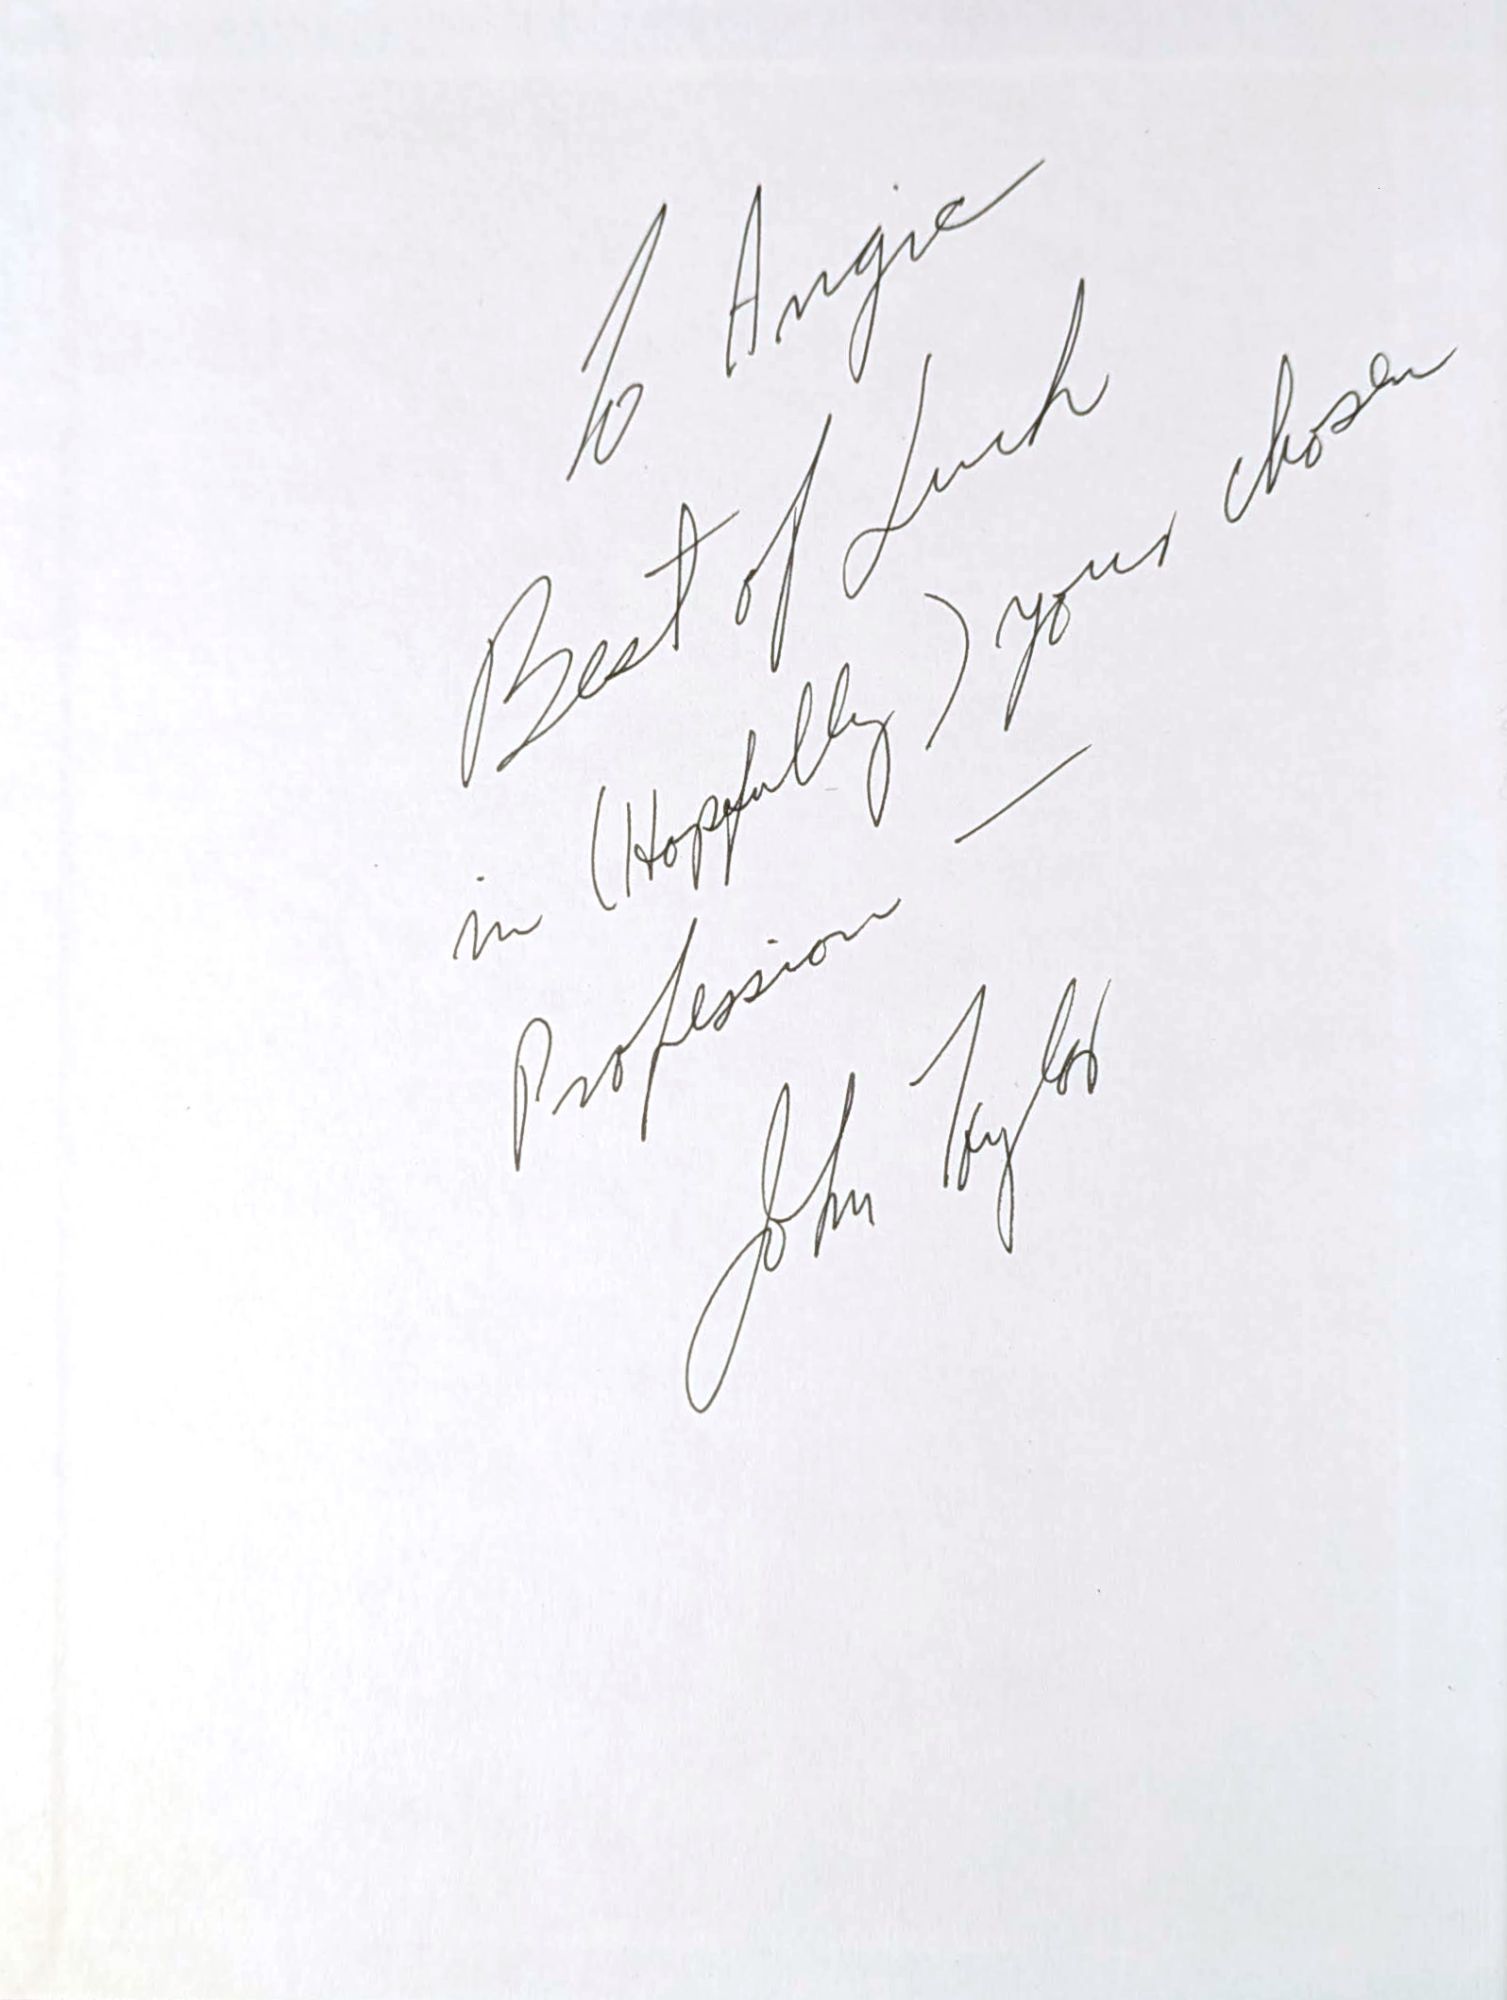 To Angie
Best of Luck
in (Hopefully) your chosen
Profession —
John Taylor